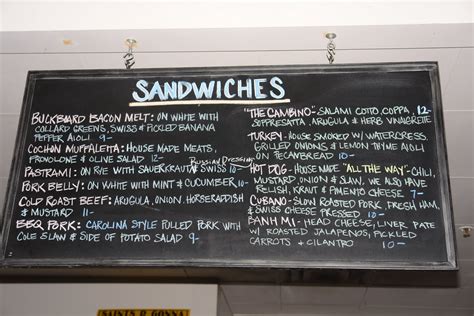 SANDWICHES
BUCKBOARD BACON MELT: ON WHITE WITH
COLLARD GREENS, SWISS & PICKLED BANANA
PEPPER AIOLI 9-
COCHON MUFFALETTA: HOUSE MADE MEATS,
PROVOLONE & OLIVE SALAD 12-
RUSSIAN DRESSING
PASTRAMI: ON RYE WITH SAUERKRAUT & SWISS 10-
PORK BELLY: ON WHITE WITH MINT & CUCUMBER 10-
COLD ROAST BEEF: ARUGULA, ONION, HORSERADISH
& MUSTARD 11-
BBQ PORK: CAROLINA STYLE PULLED PORK WITH
COLE SLAW & SIDE OF POTATO SALAD 9-
"THE CAMBINO" SALAMI COTTO, COPPA, 12-
SOPPRESATTA, ARUGULA & HERB VINAIGRETTE
TURKEY- HOUSE SMOKED W/ WATERCRESS,
GRILLED ONIONS & LEMON THYME AIOLI
ON PECANBREAD 10-
HOT DOG- HOUSE MADE "ALL THE WAY"- CHILI,
MUSTARD ONION & SLAW, WE ALSO HAVE
RELISH, KRAUT & PIMENTO CHEESE 7-
CUBANO- SLOW ROASTED PORK, FRESH HAM,
& SWISS CHEESE PRESSED 10-
BANH MI- HEAD CHEESE, LIVER PATE
W/ ROASTED JALAPENOS, PICKLED
CARROTS & CILANTRO 10-